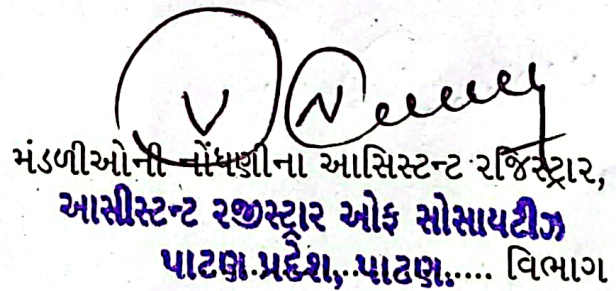 મંડળીઓની નોંધણીના આસિસ્ટન્ટ રજિસ્ટ્રાર,
આસીસ્ટન્ટ રજીસ્ટ્રાર ઓફ સોસાયટીઝ
પાટણ પ્રદેશ, પાટણ..... વિભાગ